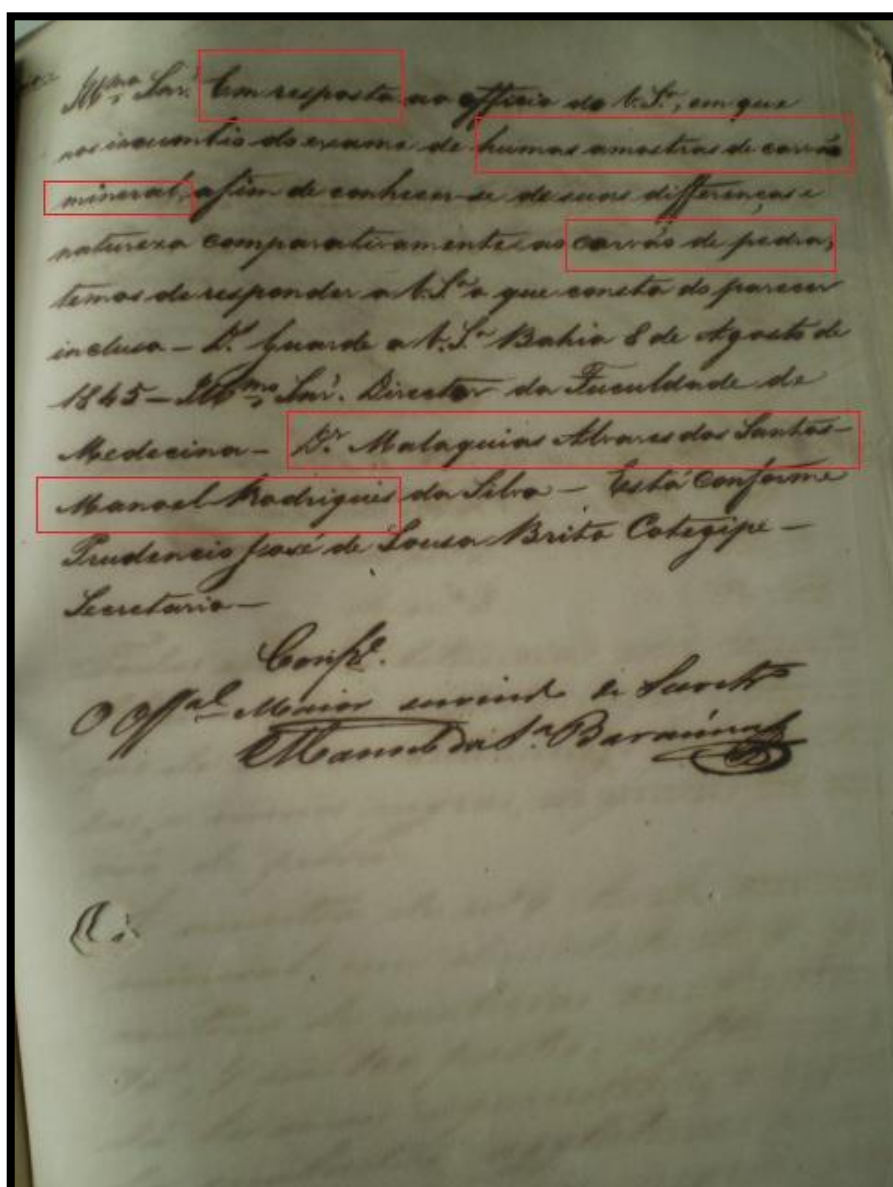 Illmo. Snr. Em resposta ao officio de V. Sª, em que
nos incumbio do exame de humas amostras de carvão
mineral, afim de conhecer-se de suas differenças e
natureza comparativamente ao carvão de pedra,
temos de responder a V. Sª o que consta do parecer
incluso - Dˢ Guarde a V. Sª Bahia 8 de Agosto de
1845 - Illmo. Snr. Director da Faculdade de
Medecina - Dʳ Malaquias Alvares dos Santos -
Manoel Rodrigues da Silva - Está Conforme
Prudencio José de Sousa Britto Cotegipe -
Secretario -
Confe.
O Offal. Maior servindo de Secretº
Manoel da Sª Baraúna